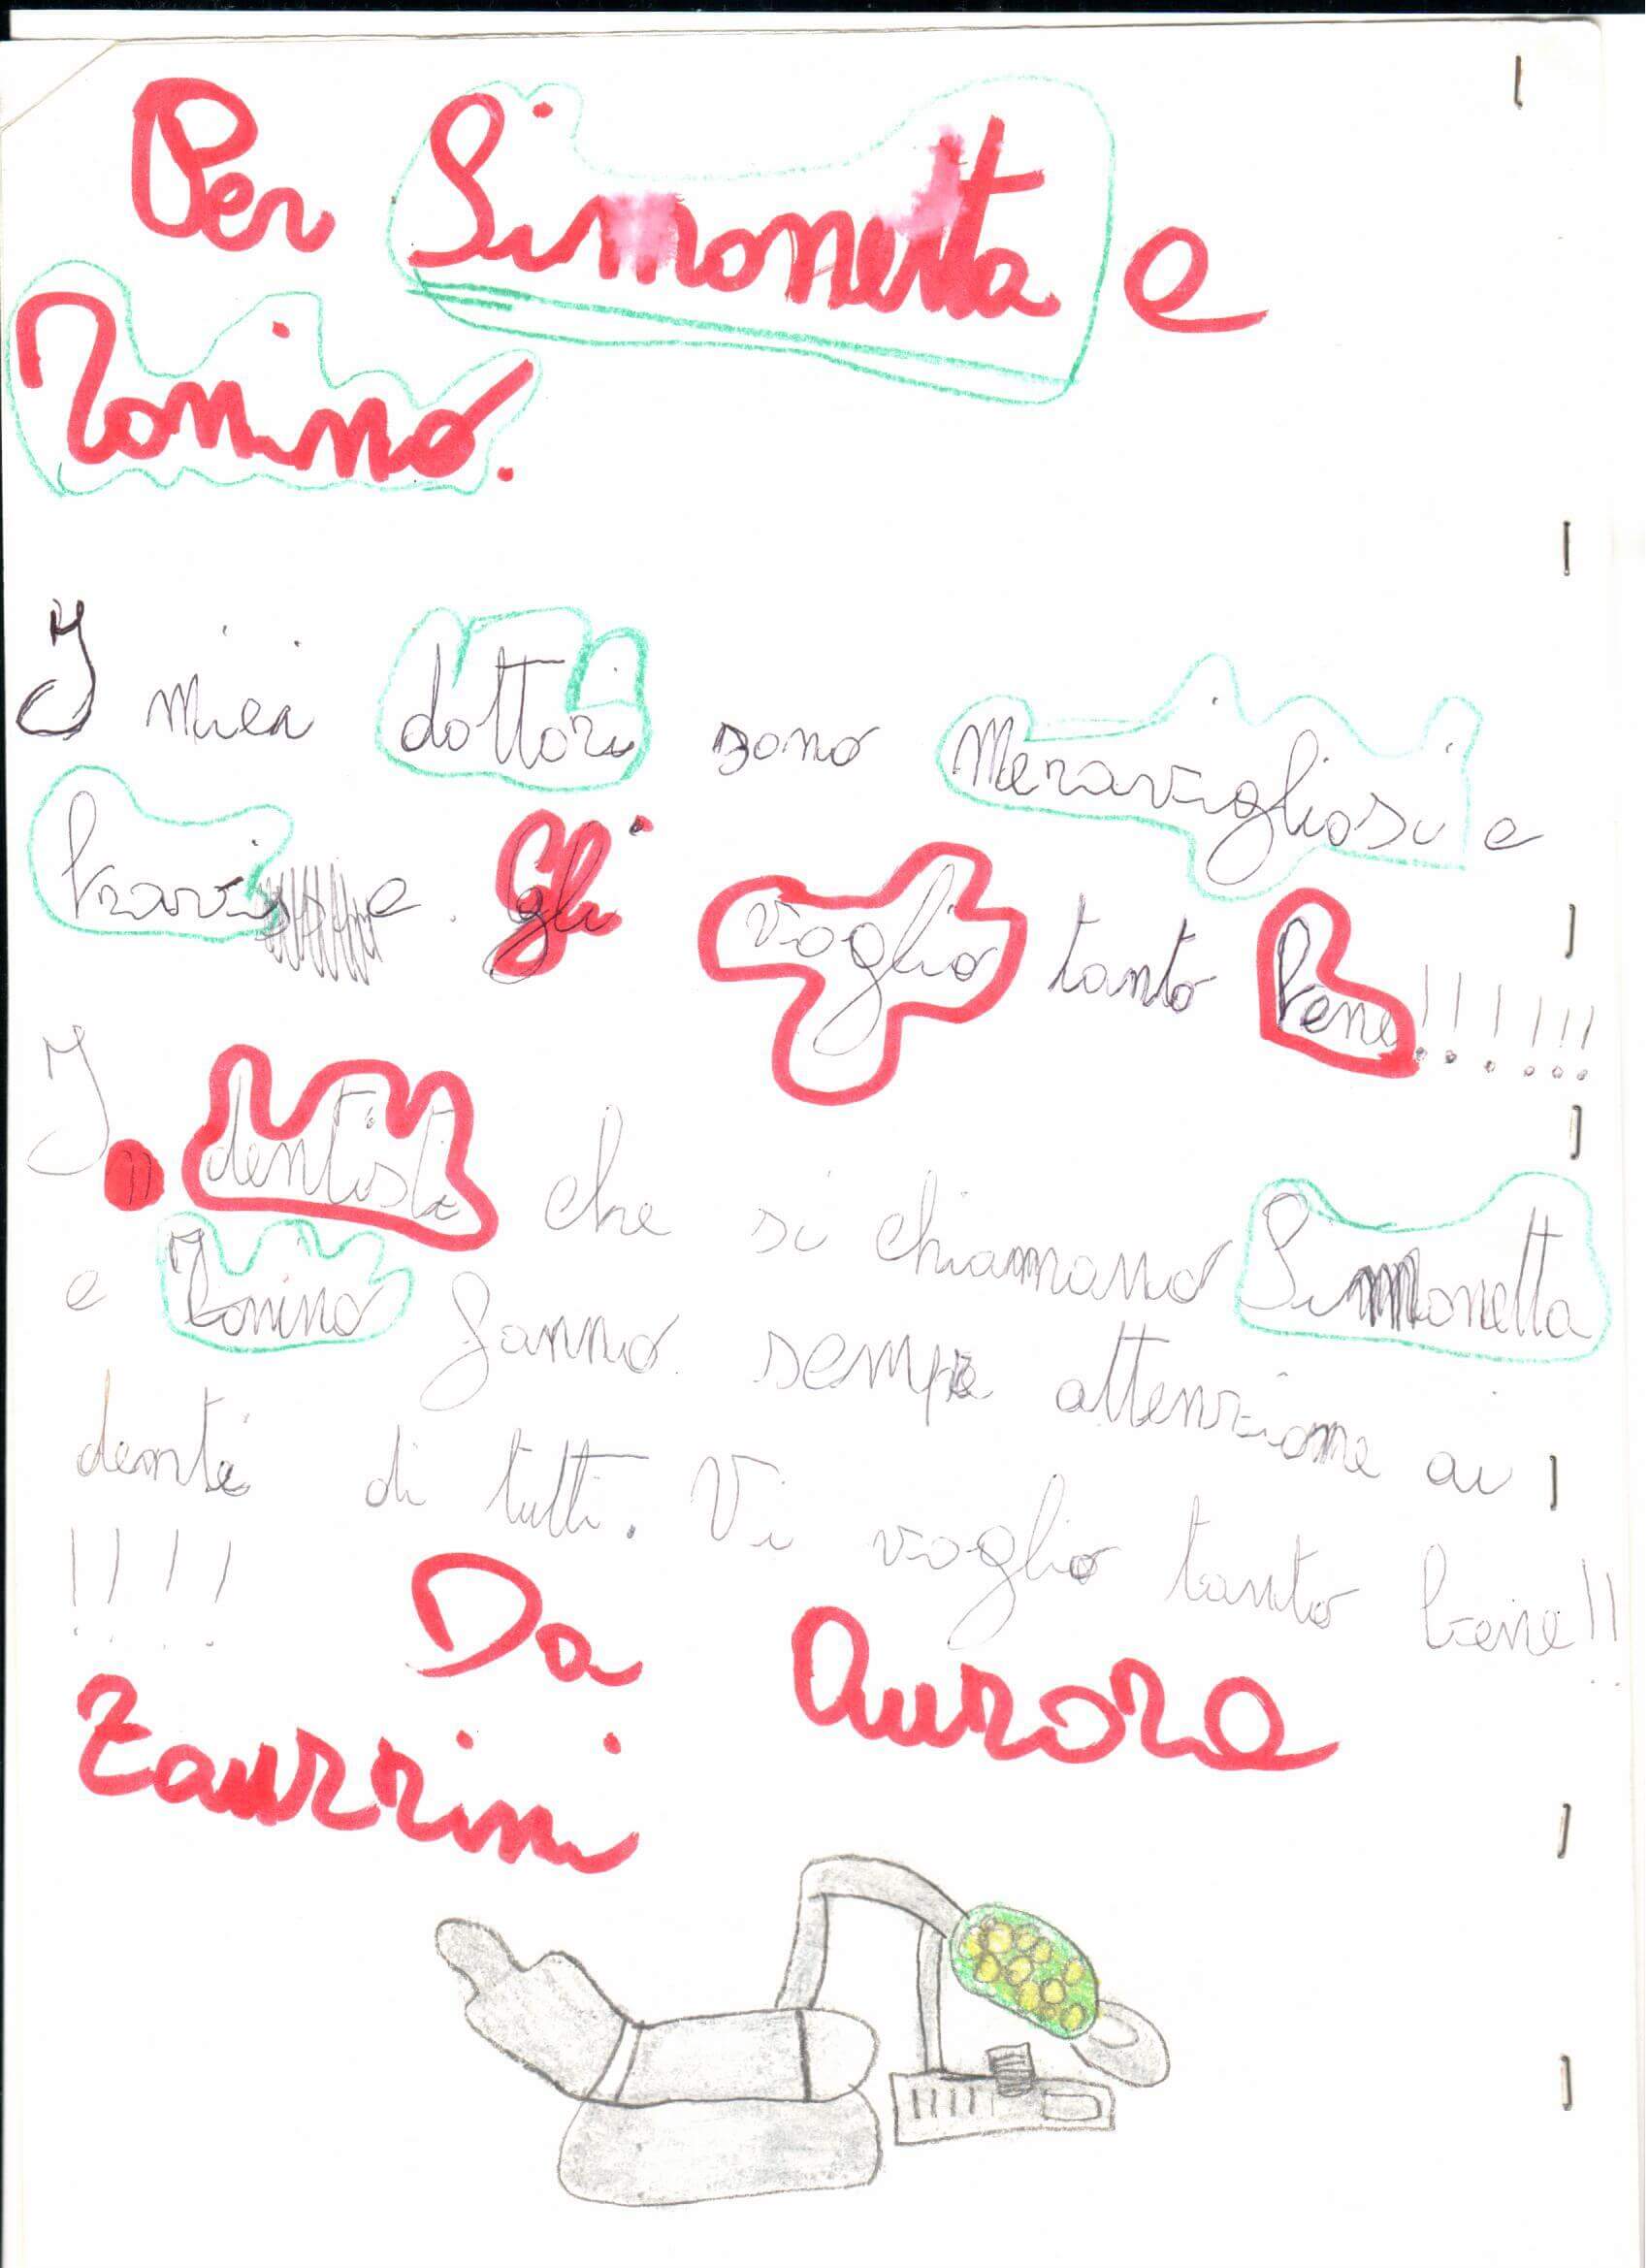 Per Simonetta e
Tonino.
I miei dottori sono meravigliosi e
bravi e. Gli voglio tanto bene!!!!!!
I dentisti che si chiamano Simonetta
e Tonino fanno sempre attenzione ai
denti di tutti. Vi voglio tanto bene!!
!!!!
Da Aurora
Zaurrini